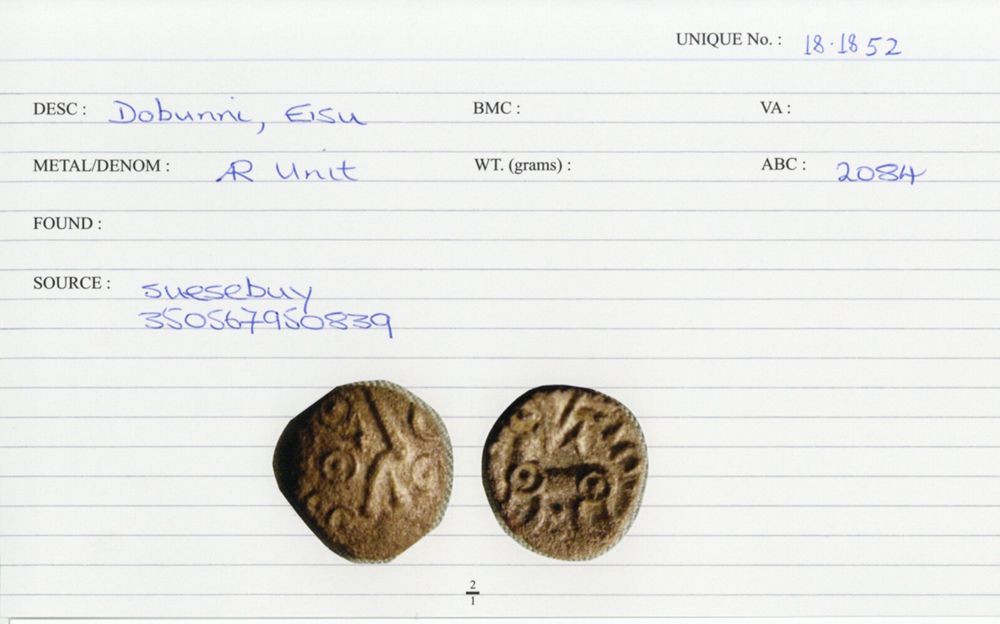 UNIQUE No. : 18.1852
DESC : Dobunni, Eisu BMC : VA :
METAL/DENOM : AR Unit WT. (grams) : ABC : 2084
FOUND :
SOURCE : suesebuy
350567950839
2
1